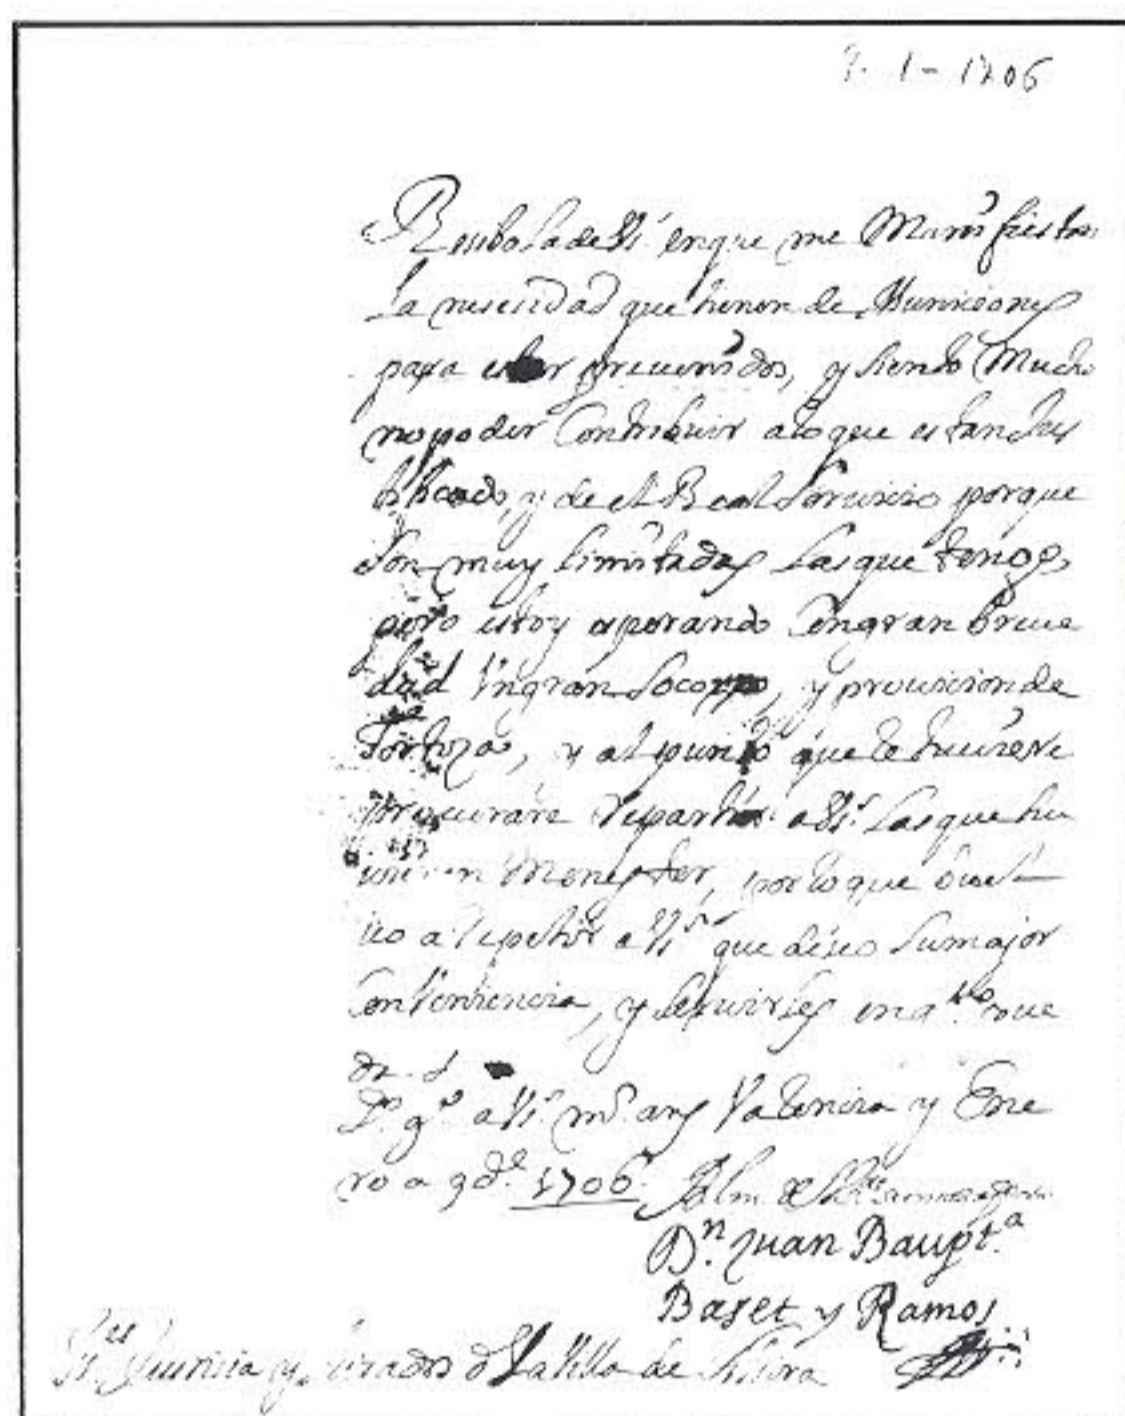 9-1-1706
Resibo la de VS. en que me Manifiestan
La nesesidad que tienen de Municiones
para estar prevenidos, y siento Mucho
no poder Contribuir a lo que es tan Jus
tificado, y de el Real Servicio porque
son muy limitadas las que tengo,
pero estoy esperando Con gran breve
dad Vn gran Socorro, y provicion de
Tortoza, y al punto que le tuviere
procurare Repartir a VS. las que hu
vieren Menester, por lo que buel
vo a Repetir a VS. que deseo su major
Conveniencia, y servirles en q.to
Ds. g.e a VS. m.s any Valencia y Ene
ro a 9 de 1706. BLm de VS.
D.n Juan Baupt.a
Baset y Ramos
S.res Justicia y Jurados de la Villa de